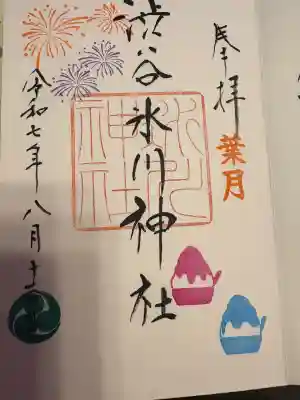 奉拝
葉月
渋谷氷川神社
氷川
神社
令和七年八月十一